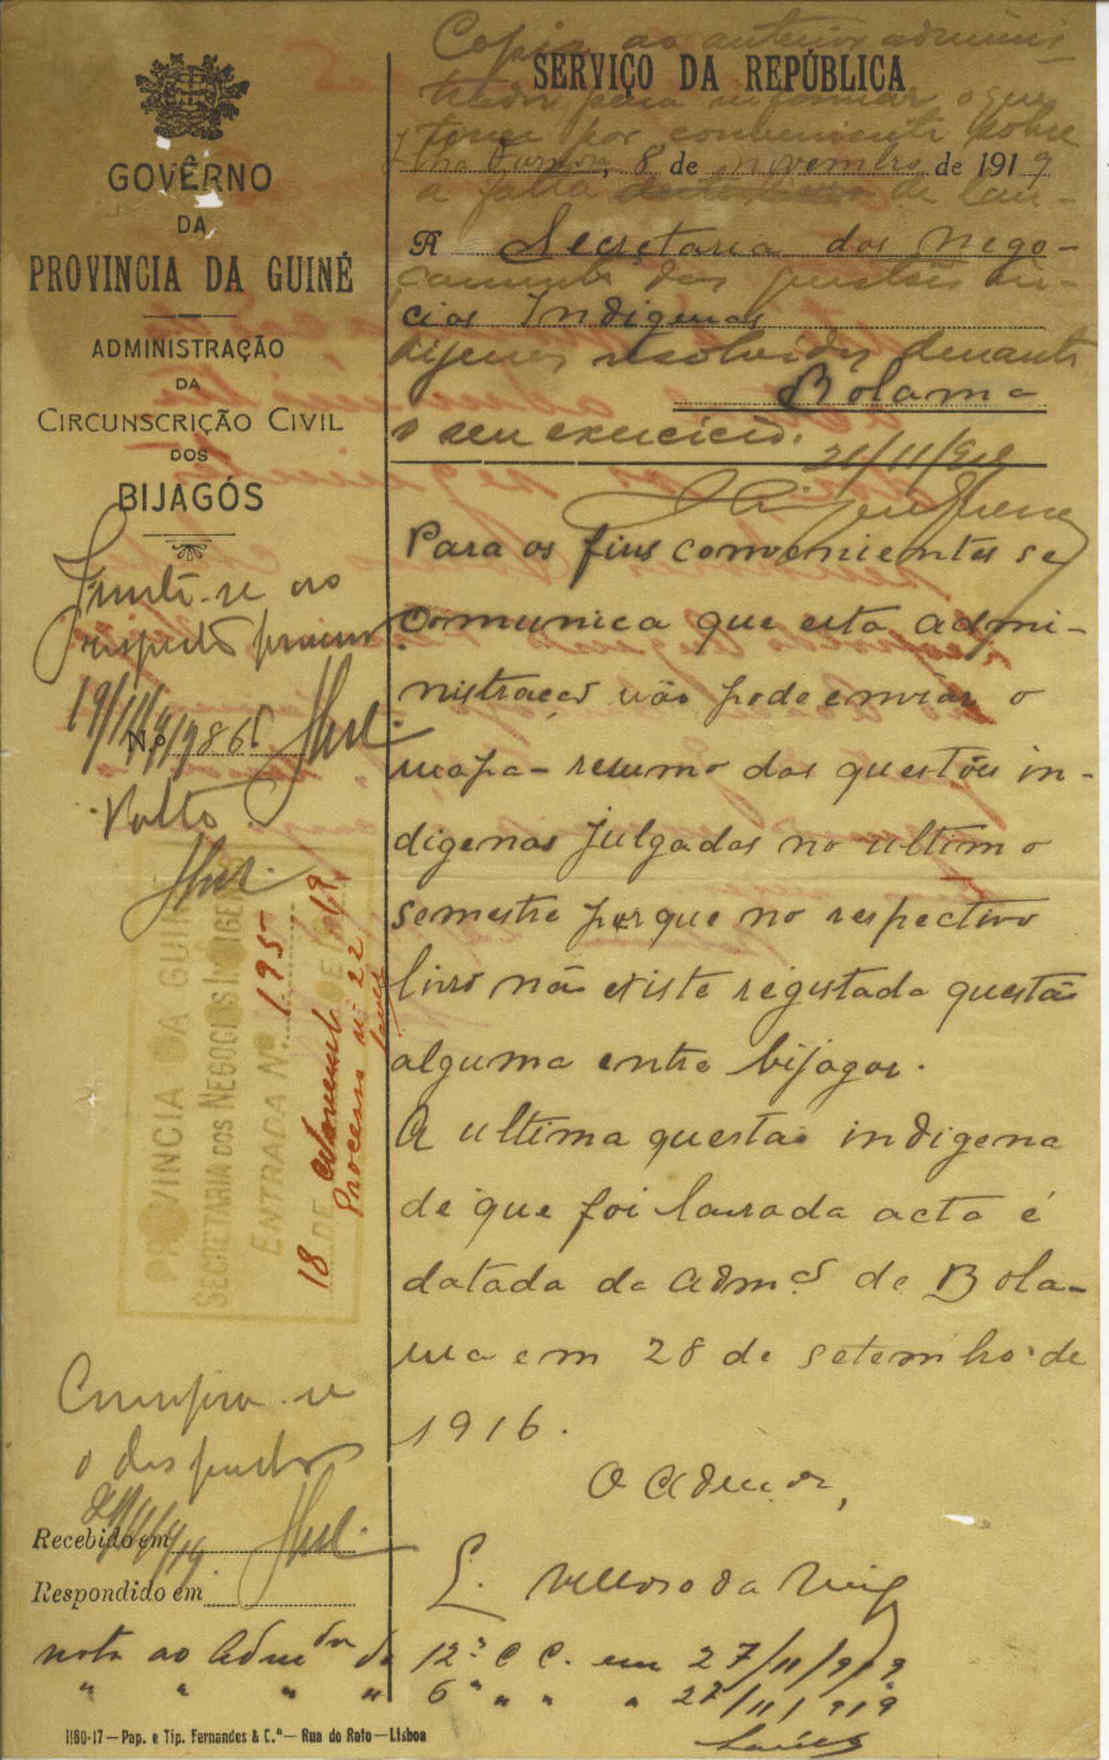 SERVIÇO DA REPÚBLICA
GOVÊRNO
DA
PROVINCIA DA GUINÉ
ADMINISTRAÇÃO
DA
CIRCUNSCRIÇÃO CIVIL
DOS
BIJAGÓS
Copia ao anterior adminis
trador para informar o que
tenha por conveniente sobre
a falta de lan-
çamento das questões in-
dijenas resolvidas durante
o seu exercicio.
21/11/919
8 de novembro de 1919
Á Secretaria dos Nego-
cios Indigenas
Bolama
Junte-se ao
respectivo processo
19/11/919
N.º 865
Volto
PROVINCIA DA GUINÉ
SECRETARIA DOS NEGOCIOS INDIGENAS
ENTRADA Nº 195
18 DE Novembro DE 1919
Processo nº 22
Para os fins convenientes se
comunica que esta admi-
nistração não pode enviar o
mapa-resumo das questões in-
digenas julgadas no ultimo
semestre porque no respectivo
livro não existe registada questão
alguma entre bijagos.
A ultima questão indigena
de que foi lavrada acta é
datada da Adm.ão de Bola-
ma em 28 de setembro de
1916.
O Adm.or,
L. Velloso da Veiga
Cumpra-se
o despacho
Recebido em
Respondido em
nota ao Adm.dor da 12ª C C. em 27/11/919
" " " " 6ª " " " 27/11/919
1180-17—Pap. e Tip. Fernandes & C.ª—Rua do Rato—Lisboa